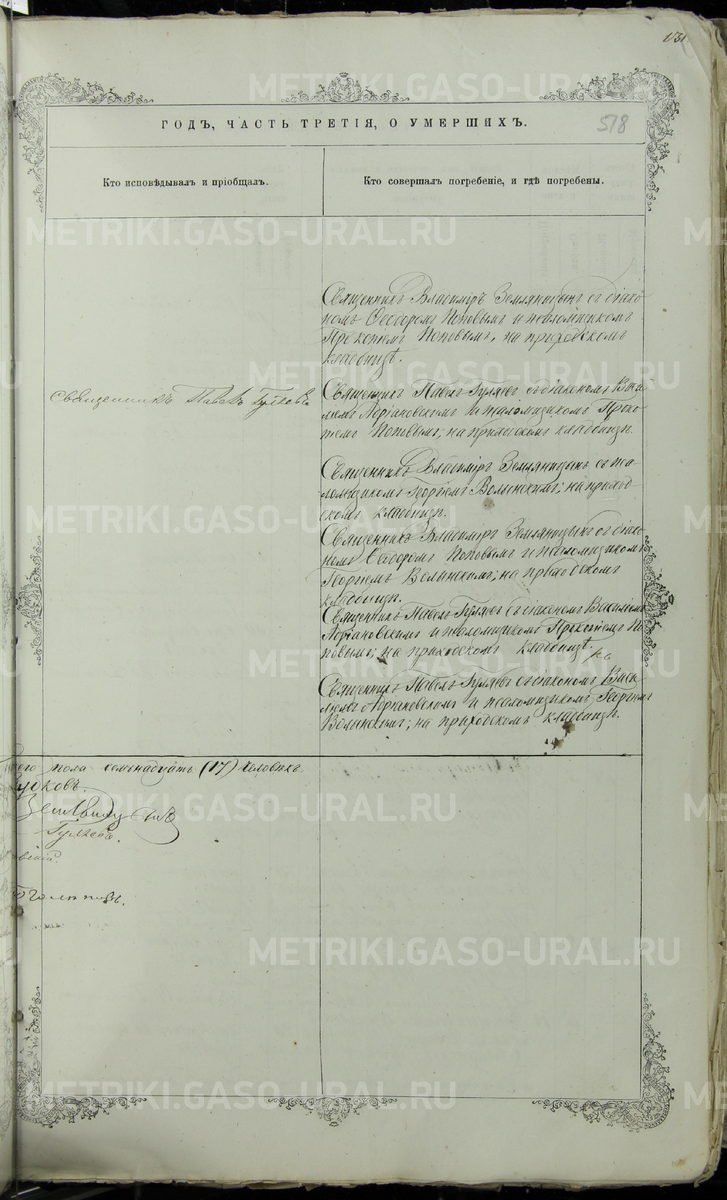 131
518
ГОДЪ, ЧАСТЬ ТРЕТІЯ, О УМЕРШИХЪ.
Кто исповѣдывалъ и пріобщалъ.
Кто совершалъ погребеніе, и гдѣ погребены.
Священникъ Владиміръ Земляницынъ съ діако
номъ Ѳеодоромъ Поповымъ и псаломщикомъ
Прокопіемъ Поповымъ, на приходскомъ
кладбищѣ.
Священникъ Павелъ
Священникъ Павелъ Гуляевъ съ діакономъ Васи
ліемъ и псаломщикомъ Проко
піемъ Поповымъ, на приходскомъ кладбищѣ.
Священникъ Владиміръ Земляницынъ съ пса
ломщикомъ Георгіемъ Волынскимъ; на приход
скомъ кладбищѣ.
Священникъ Владиміръ Земляницынъ съ діако
номъ Ѳеодоромъ Поповымъ и псаломщикомъ
Георгіемъ Волынскимъ; на приходскомъ
кладбищѣ.
Священникъ Павелъ Гуляевъ съ діакономъ Василіемъ
и псаломщикомъ Прокопіемъ По
повымъ; на приходскомъ кладбищѣ
Священникъ Павелъ Гуляевъ съ діакономъ Васи
ліемъ и псаломщикомъ Георгіемъ
Волынскимъ; на приходскомъ кладбищѣ.
пола семьнадцать (17) человѣкъ
METRIKI.GASO-URAL.RU